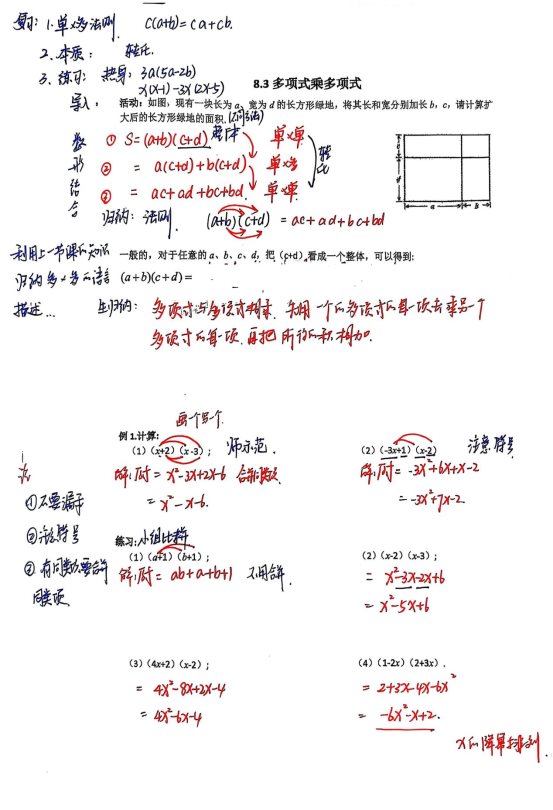 复习: 1. 单×多法则. c(a+b)=ca+cb.
2. 本质: 转化.
3. 练习: 热身: 3a(5a-2b)
x(x-1)-3x(2x-5)
8.3 多项式乘多项式
导入:
活动:如图,现有一块长为 a、宽为 d 的长方形绿地,将其长和宽分别加长 b,c,请计算扩
大后的长方形绿地的面积.(不同方法)
数形结合
① S=(a+b)(c+d) 整体 单×单
② = a(c+d)+b(c+d). 单×多
③ = ac+ad+bc+bd. 单×单.
转化
c
d
a
b
归纳: 法则. (a+b)(c+d) = ac+ad+bc+bd
利用上一节课的知识
一般的,对于任意的 a、b、c、d,把(c+d)看成一个整体,可以得到:
归纳多×多的语言
(a+b)(c+d)=
描述...
生归纳: 多项式与多项式相乘, 先用一个的多项式的每一项去乘另一个
多项式的每一项. 再把所得的积相加.
例 1.计算:
(1)(x+2)(x-3); 师示范.
(2)(-3x+1)(x-2) 注意符号
解:原式= x²-3x+2x-6 合并同类项
= x²-x-6.
解:原式= -3x²+6x+x-2
= -3x²+7x-2.
①不要漏乘
②注意符号
③有同类项要合并
同类项
练习:小组比拼
(1)(a+1)(b+1);
解:原式= ab+a+b+1 不用合并.
(2)(x-2)(x-3);
= x²-3x-2x+6
= x²-5x+6
(3)(4x+2)(x-2);
= 4x²-8x+2x-4
= 4x²-6x-4
(4)(1-2x)(2+3x).
= 2+3x-4x-6x²
= -6x²-x+2.
x的降幂排列.